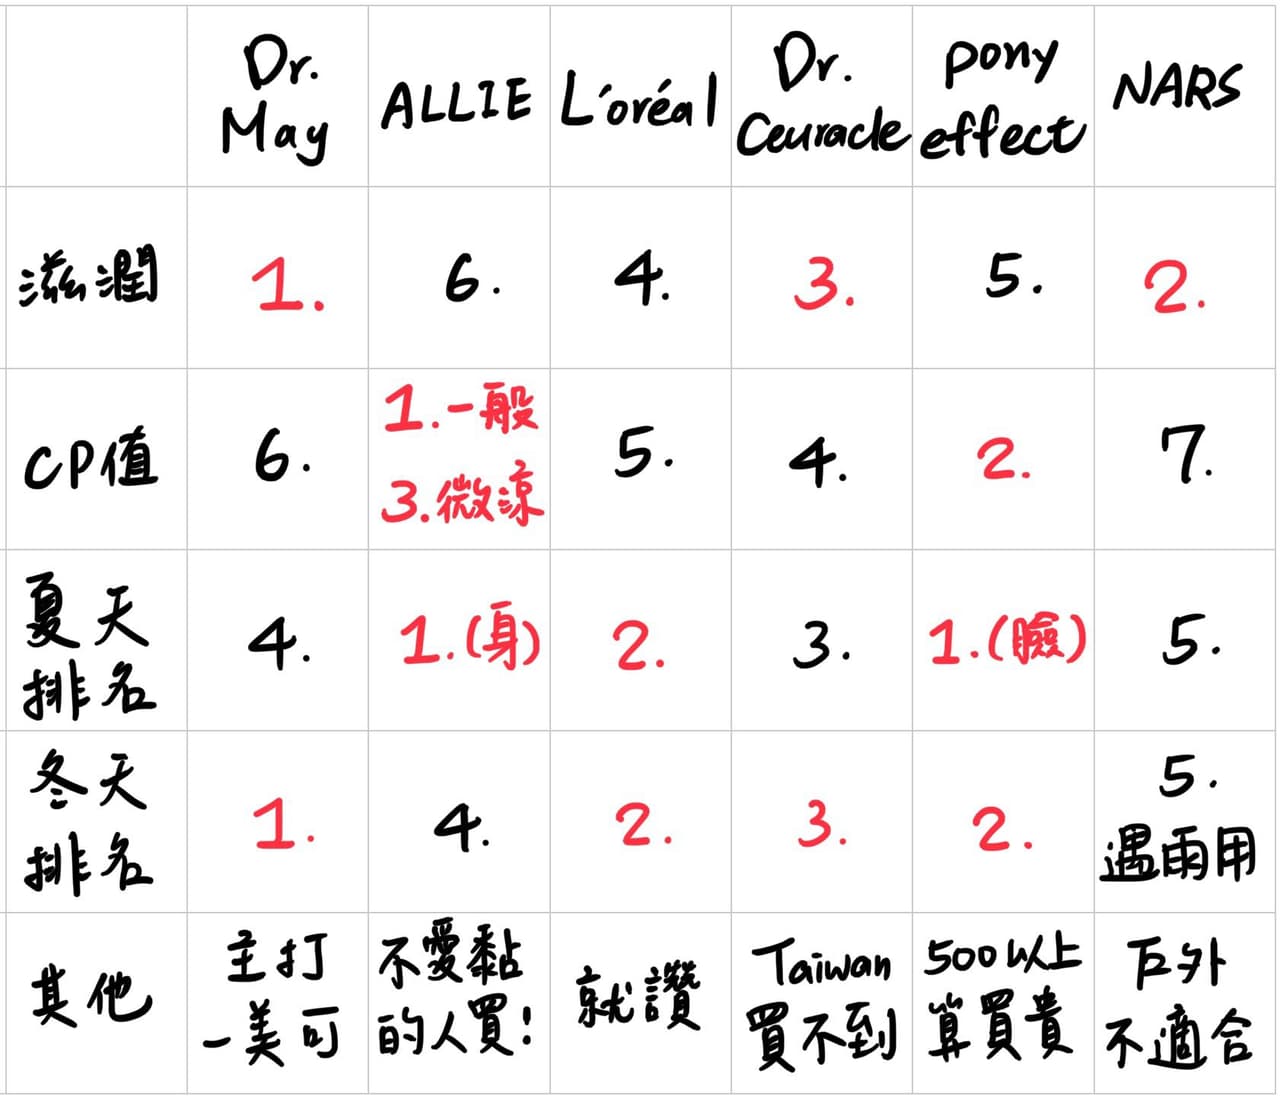 Dr.
May
ALLIE
L'oréal
Dr.
Ceuracle
pony
effect
NARS
滋潤
1.
6.
4.
3.
5.
2.
CP值
6.
1.一般
3.微涼
5.
4.
2.
7.
夏天
排名
4.
1.(身)
2.
3.
1.(臉)
5.
冬天
排名
1.
4.
2.
3.
2.
5.
遇雨用
其他
主打
一美可
不愛黏
的人買!
就讚
Taiwan
買不到
500以上
算買貴
戶外
不適合